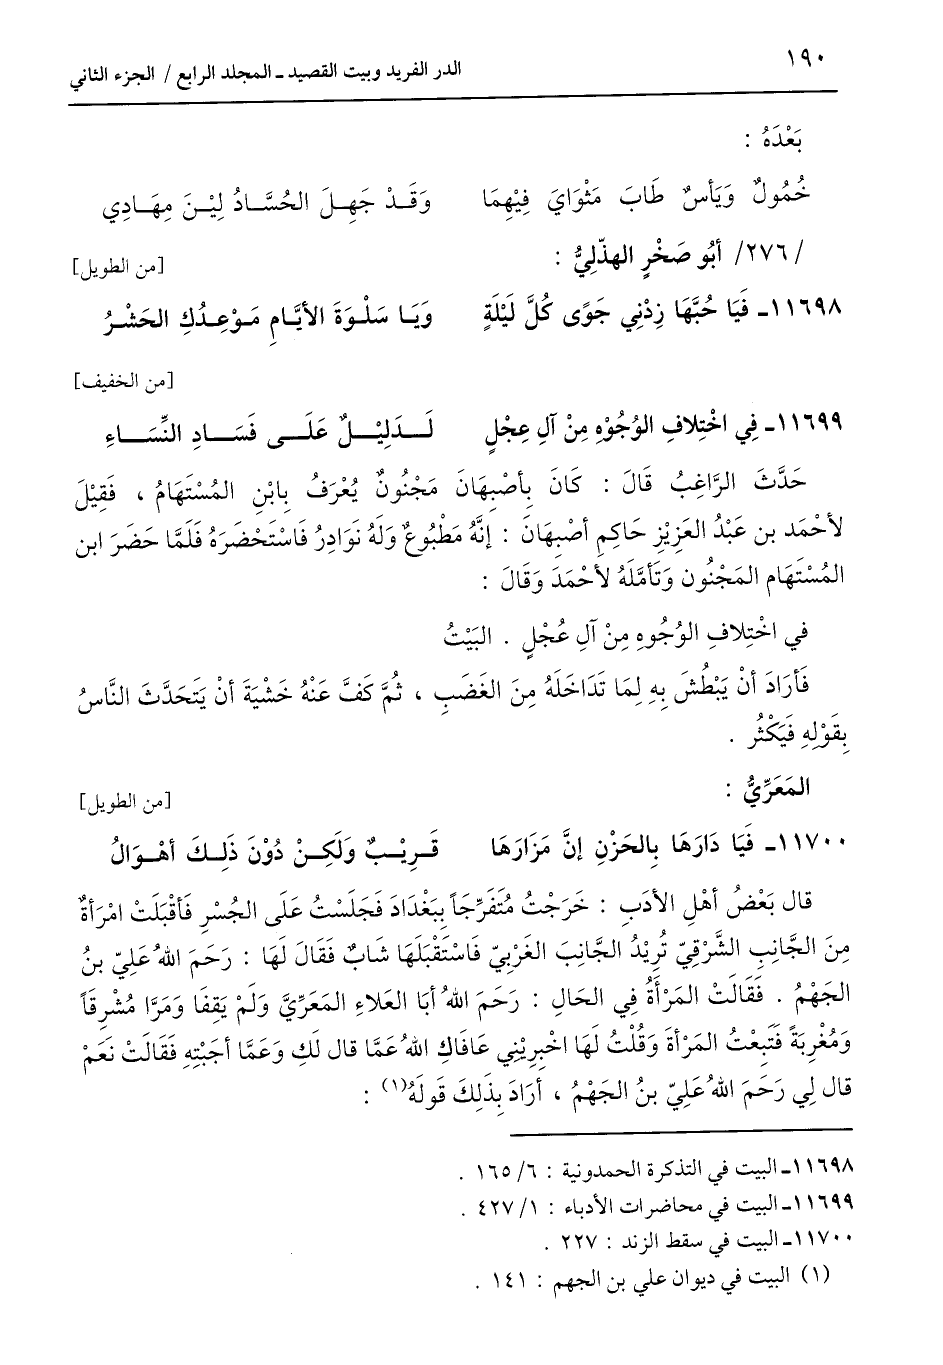 ١٩٠
الدر الفريد وبيت القصيد ـ المجلد الرابع / الجزء الثاني
بَعْدَهُ :
خُمُولٌ وَيَأسٌ طَابَ مَثْوَايَ فِيْهِمَا وَقَـدْ جَهِـلَ الحُسَّـادُ لِيْـنَ مِهَـادِي
/٢٧٦/ أَبُو صَخْرٍ الهذّلِيُّ : [من الطويل]
١١٦٩٨ـ فَيَا حُبَّهَا زِدْنِي جَوًى كُلَّ لَيْلَةٍ وَيَـا سَلْـوَةَ الأيَّـامِ مَـوْعِـدُكِ الحَشْـرُ
[من الخفيف]
١١٦٩٩ـ فِي اخْتِلافِ الوُجُوْهِ مِنْ آلِ عِجْلٍ لَـدَلِيْـلٌ عَلَـى فَسَـادِ النِّسَـاءِ
حَدَّثَ الرَّاغِبُ قَالَ : كَانَ بِأَصْبِهَانَ مَجْنُونٌ يُعْرَفُ بِابْنِ المُسْتَهَامُ ، فَقِيْلَ
لأَحْمَد بن عَبْدُ العَزِيْزِ حَاكِمِ أَصْبِهَانَ : إنَّهُ مَطْبُوعٌ وَلَهُ نَوَادِرُ فَاسْتَحْضَرَهُ فَلَمَّا حَضَرَ ابن
المُسْتَهَامِ المَجْنُون وَتَأَمَّلَهُ لأَحْمَدَ وَقَالَ :
في اخْتِلافِ الوُجُوهِ مِنْ آلِ عُجْلٍ . البَيْتُ
فَأَرَادَ أَنْ يَبْطُشَ بِهِ لِمَا تَدَاخَلَهُ مِنَ الغَضَبِ ، ثُمَّ كَفَّ عَنْهُ خَشْيَةَ أَنْ يَتَحَدَّثَ النَّاسُ
بِقَوْلِهِ فَيَكْثُر .
المَعَرِّيُّ : [من الطويل]
١١٧٠٠ـ فَيَا دَارَهَا بِالحَزْنِ إنَّ مَزَارَهَا قَـرِيْـبٌ وَلَكِـنْ دُوْنَ ذَلِـكَ أَهْـوَالُ
قال بَعْضُ أَهْلِ الأدَبِ : خَرَجْتُ مُتَفَرِّجَاً بِبَغْدَادَ فَجَلَسْتُ عَلَى الجُسْرِ فَأَقْبَلَتْ امْرَأةٌ
مِنَ الجَّانِبِ الشَّرْقِيّ تُرِيْدُ الجَّانِبَ الغَرْبِيّ فَاسْتَقْبَلَهَا شَابٌ فَقَالَ لَهَا : رَحَمَ اللهُ عَلِيّ بنُ
الجَهْمُ . فَقَالَتْ المَرْأَةُ فِي الحَالِ : رَحَمَ اللهُ أَبَا العَلاءِ المَعَرِّيَّ وَلَمْ يَقِفَا وَمَرَّا مُشْرِقَاً
وَمُغْرِبَةً فَتَبِعْتُ المَرْأَةَ وَقُلْتُ لَهَا اخْبِرِيْنِي عَافَاكِ اللهُ عَمَّا قال لَكِ وَعَمَّا أَجَبْتِهِ فَقَالَتْ نَعَمْ
قال لِي رَحَمَ اللهُ عَلِيّ بنُ الجَهْمُ ، أَرَادَ بِذَلِكَ قَولَهُ(١) :
١١٦٩٨ـ البيت في التذكرة الحمدونية : ٦/ ١٦٥ .
١١٦٩٩ـ البيت في محاضرات الأدباء : ١/ ٤٢٧ .
١١٧٠٠ـ البيت في سقط الزند : ٢٢٧ .
(١) البيت في ديوان علي بن الجهم : ١٤١ .